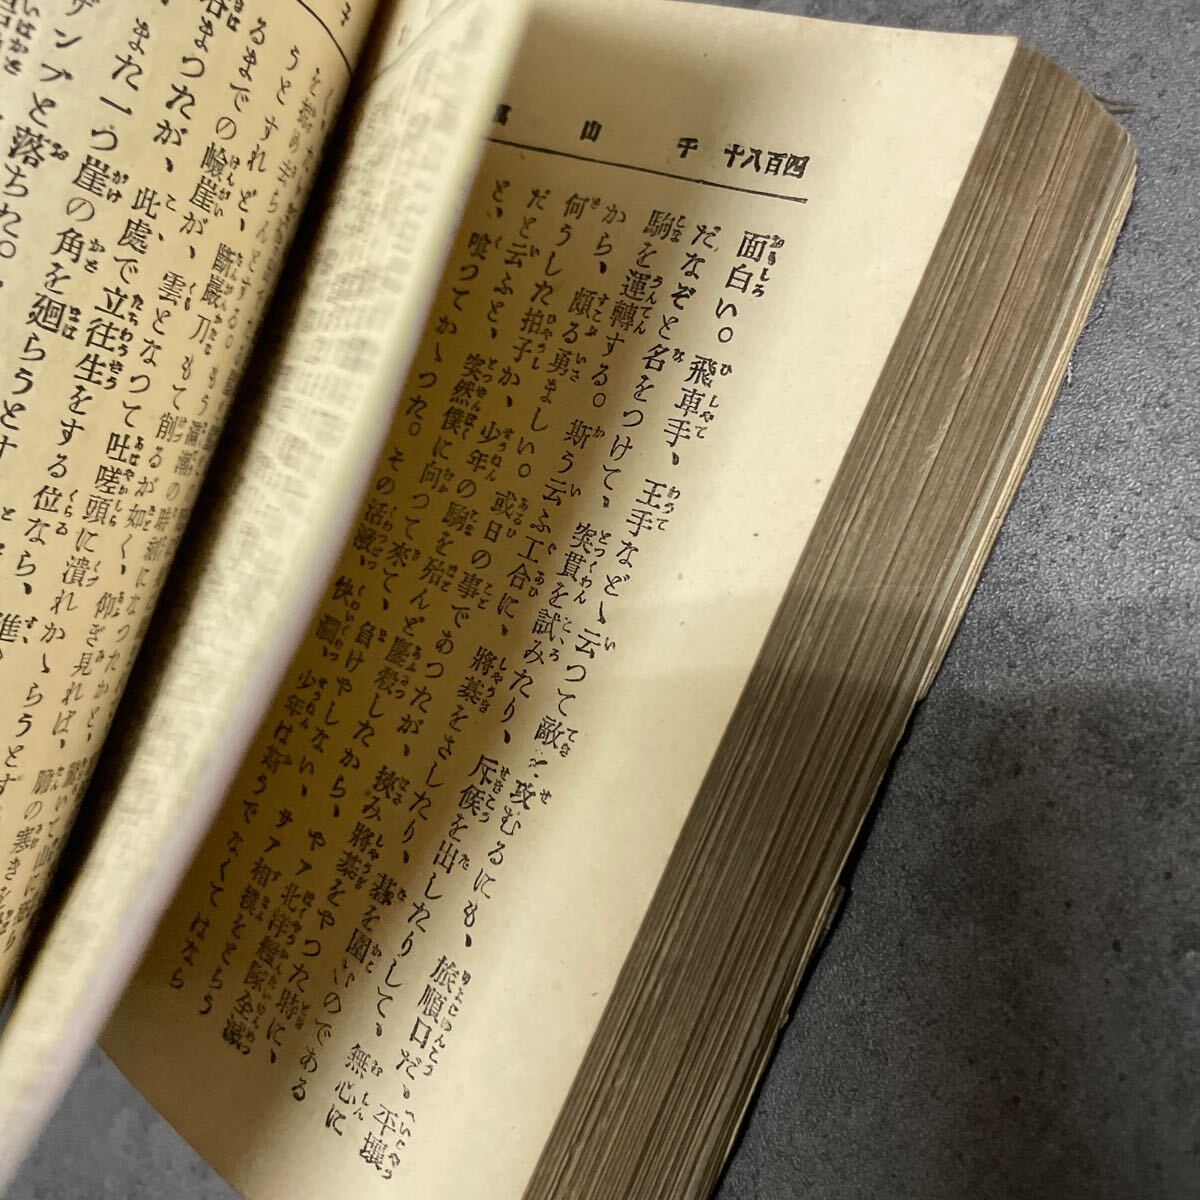 四百八十
千山萬
面白い。飛車手、王手などゝ云つて敵を攻むるにも、旅順口だ、平壤
だなぞと名をつけて、突貫を試みたり、斥候を出したりして、無心に
駒を運轉する。斯う云ふ工合に、將棊をさしたり、碁を圍むのである
から、頗る勇ましい。或日の事であつたが、挾み將棊をやつた時に、
何うした拍子か、少年の駒を殆んど鏖殺したから、ヤア北洋艦隊全滅
だと云ふと、突然僕に向つて來て、負けやしない、サア相撲をとらう
と、喰つてかゝつた。その活潑、快濶、少年は斯うでなくてはなら
うとすれど、斷巖刀もて削るが如く、仰ぎ見れば、
るまでの嶮崖が、雲となつて吐嗟頭に潰れかゝらうとす
まつたが、此處で立往生をする位なら、
また一つ崖の角を廻らうとす
ザンブと落ちた。